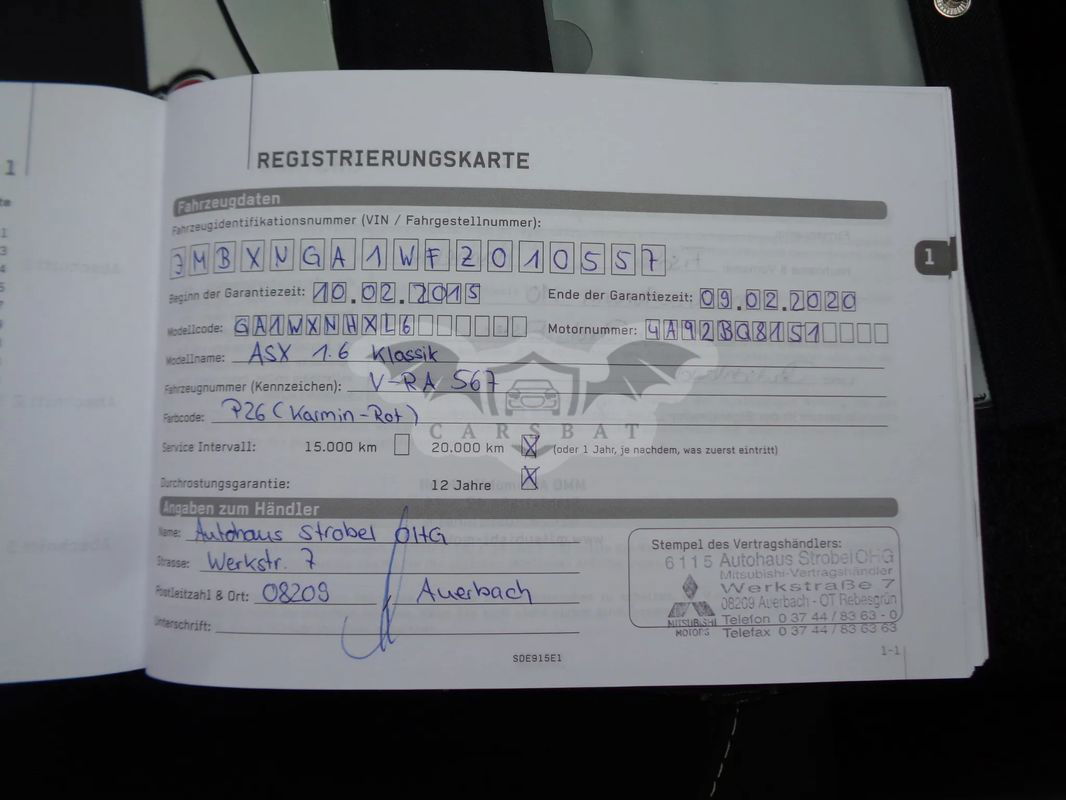 REGISTRIERUNGSKARTE
Fahrzeugdaten
Fahrzeugidentifikationsnummer (VIN / Fahrgestellnummer):
JMBXNGA1WFZ010557
Beginn der Garantiezeit: 10.02.2015 Ende der Garantiezeit: 09.02.2020
Modellcode: GA1WXNHXL6 Motornummer: 4A92BQ8151
Modellname: ASX 1.6 Klassik
Fahrzeugnummer (Kennzeichen): V-RA 567
Farbcode: P26 (Karmin-Rot)
CARSBAT
Service Intervall: 15.000 km 20.000 km X (oder 1 Jahr, je nachdem, was zuerst eintritt)
Durchrostungsgarantie: 12 Jahre X
Angaben zum Händler
Name: Autohaus Strobel OHG
Strasse: Werkstr. 7
Postleitzahl & Ort: 08209 Auerbach
Unterschrift:
Stempel des Vertragshändlers:
6115 Autohaus Strobel OHG
Mitsubishi-Vertragshändler
Werkstraße 7
08209 Auerbach - OT Rebesgrün
Telefon 0 37 44 / 83 63 - 0
Telefax 0 37 44 / 83 63 63
MITSUBISHI
MOTORS
SDE915E1
1-1
1
1